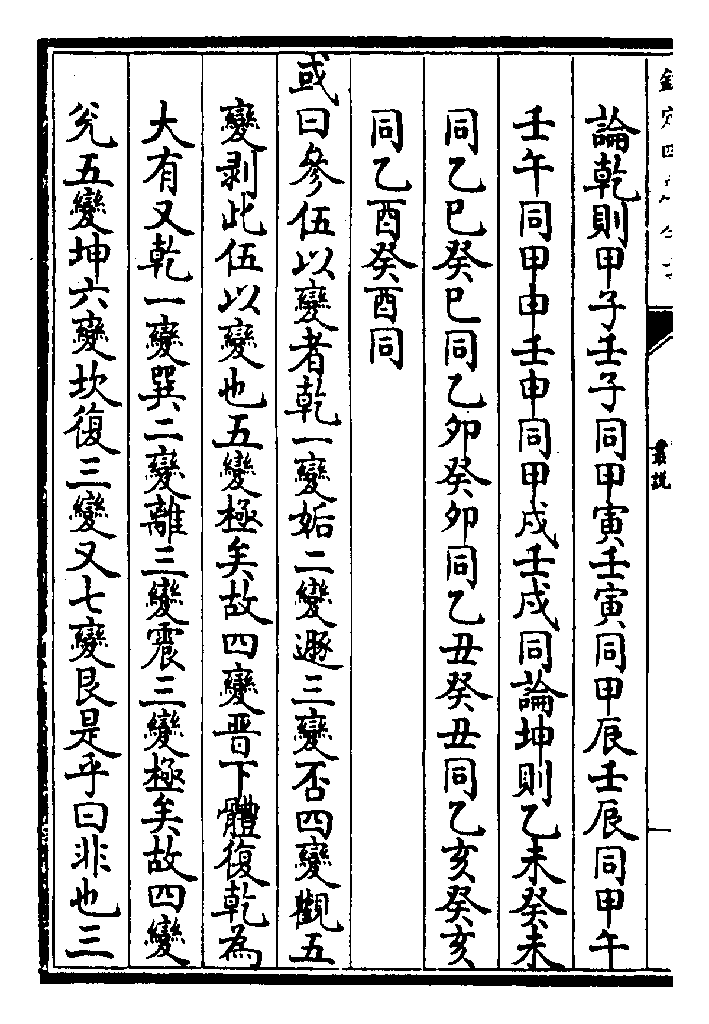 論乾則甲子壬子同甲寅壬寅同甲辰壬辰同甲午
壬午同甲申壬申同甲戌壬戌同論坤則乙未癸未
同乙巳癸巳同乙卯癸卯同乙丑癸丑同乙亥癸亥
同乙酉癸酉同
或曰參伍以變者乾一變姤二變遯三變否四變觀五
變剥此伍以變也五變極矣故四變晋下體復乾為
大有又乾一變巽二變離三變震三變極矣故四變
兊五變坤六變坎復三變又七變艮是乎曰非也三
叢説